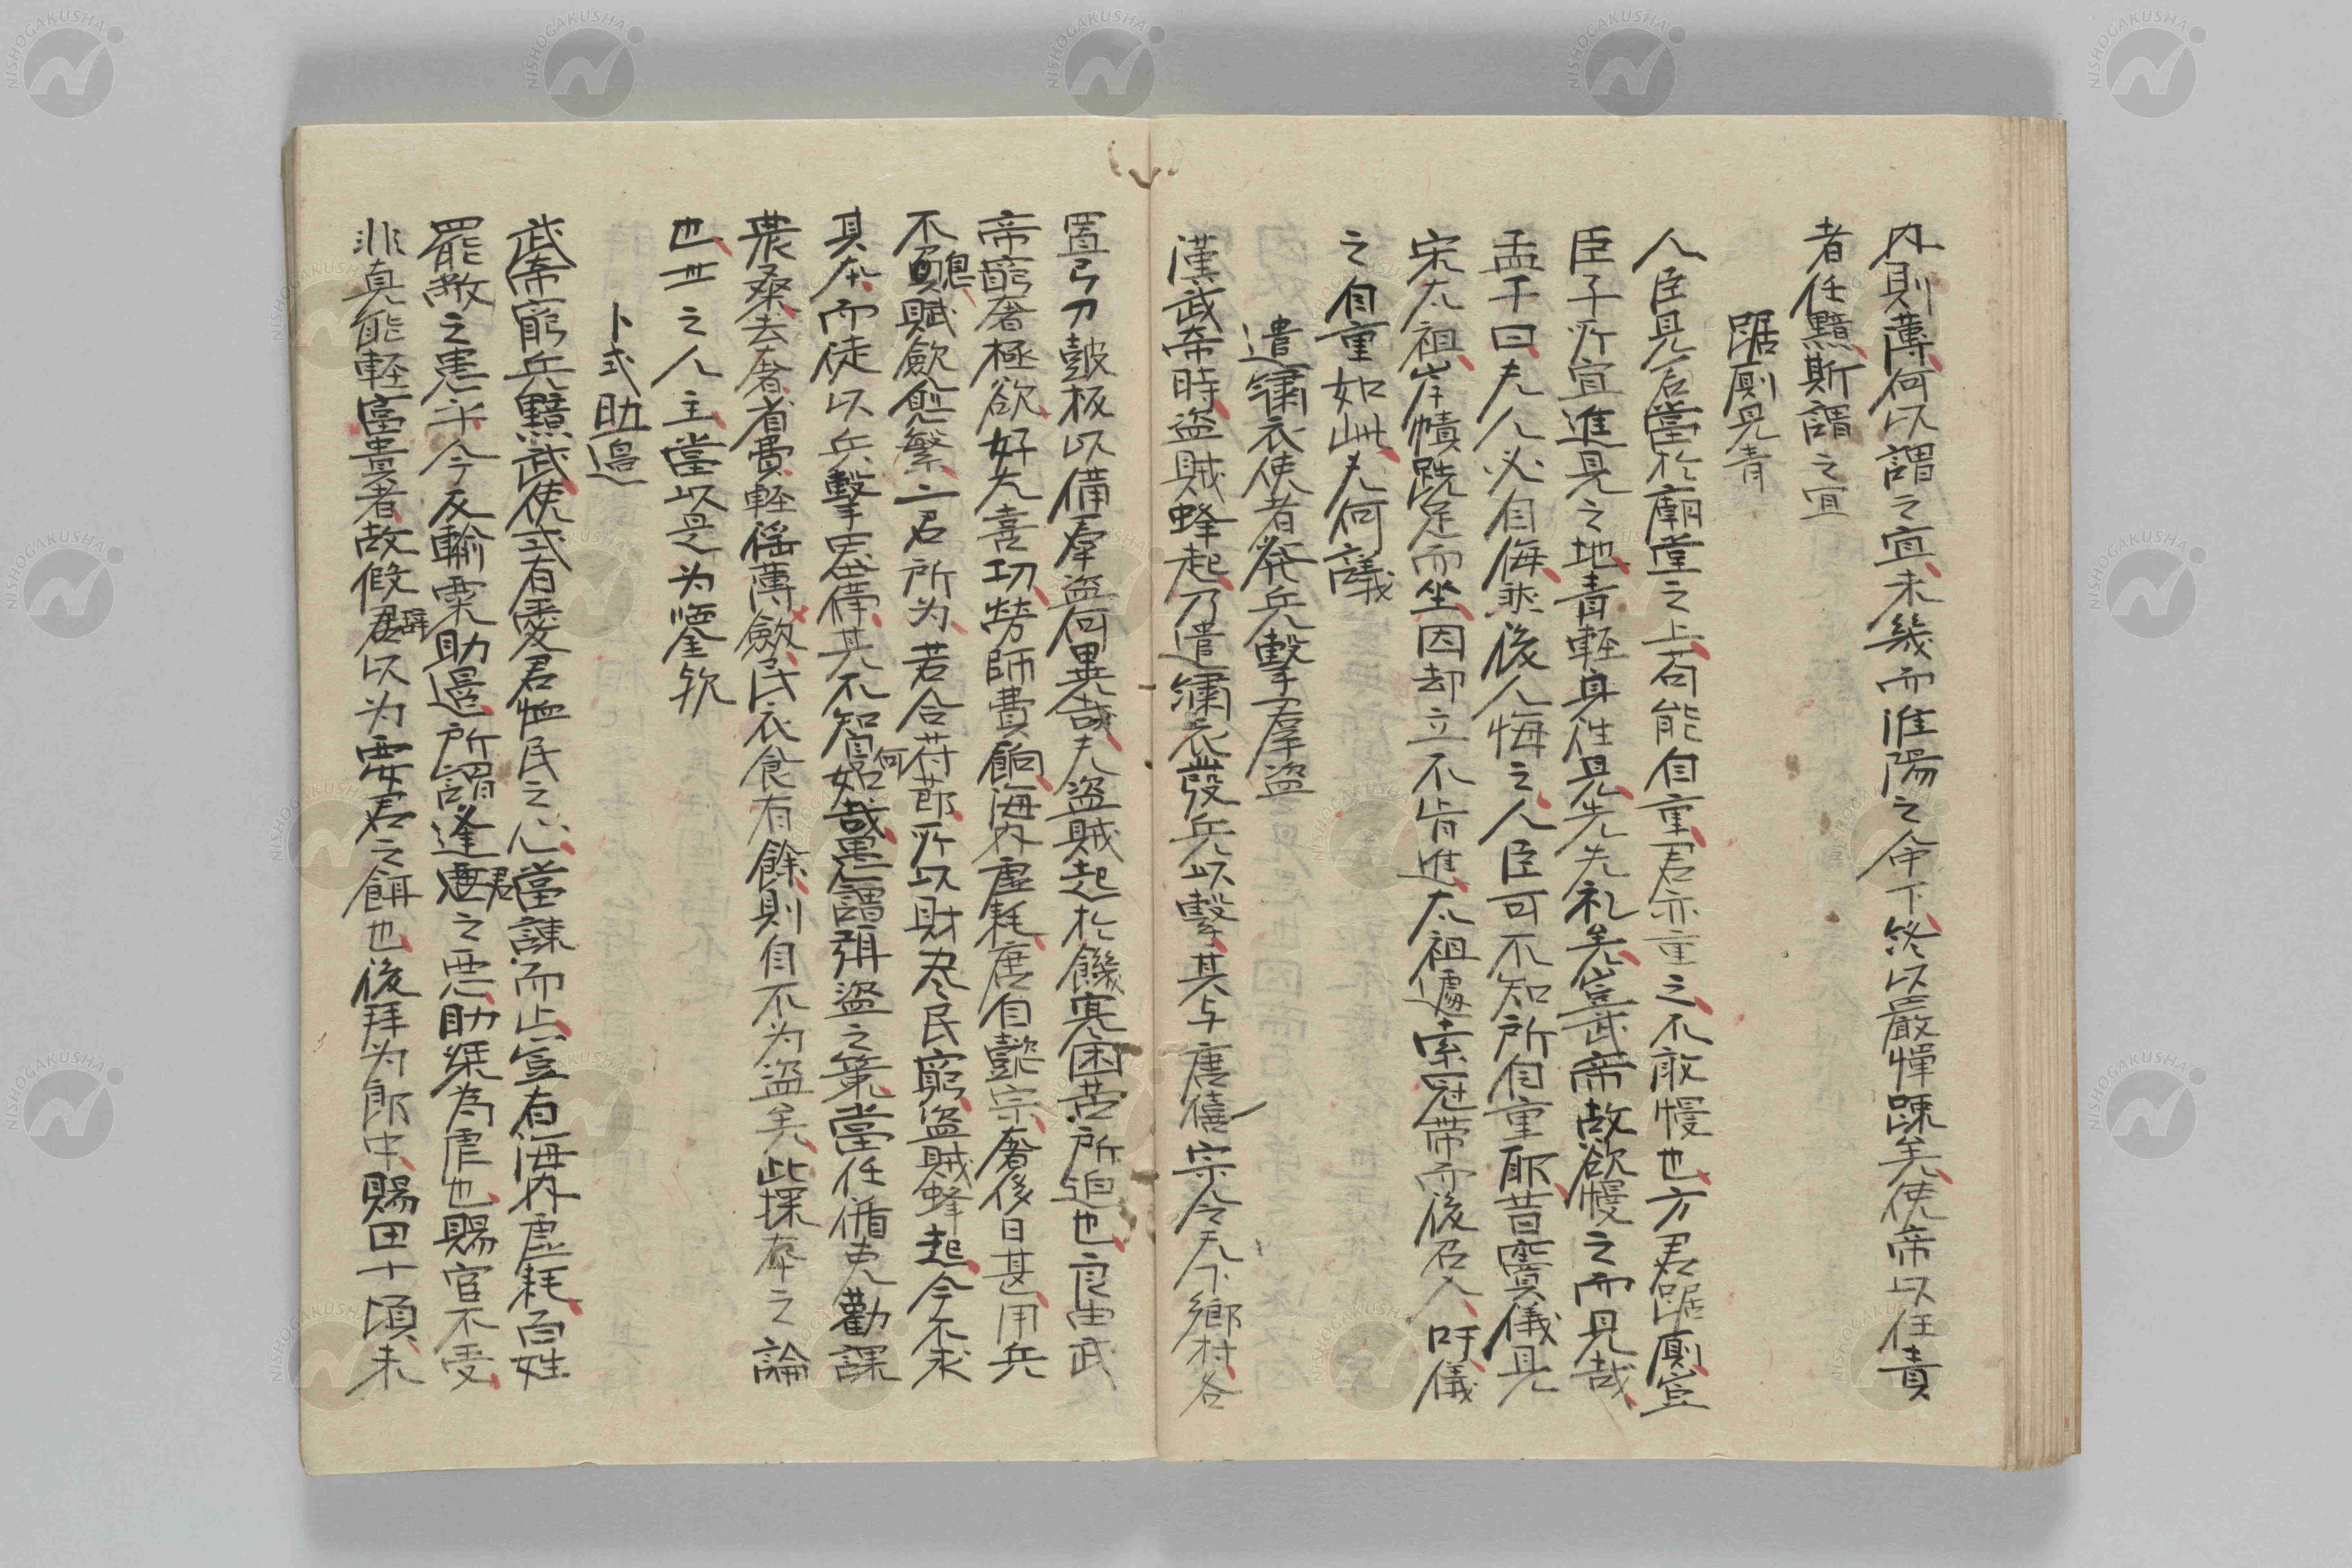 内則薄何以謂之宜未幾而淮陽之命下終以嚴憚踈矣使帝以任責
者任黯斯謂之宜
踞厠見青
人臣見君當於廟堂之上苟能自重君亦重之不敢慢也方君踞厠豈
臣子所宜進見之地青輕身徃見先失礼矣豈武帝故欲慢之而見哉
孟子曰夫人必自侮然後人悔之人臣可不知所自重耶昔竇儀見
宋太祖岸幘跣足而坐因却立不肯進太祖遽索冠帯而後召入吁儀
之自重如此夫何議
遣繡衣使者発兵擊羣盗
漢武帝時盗賊蜂起乃遣繡衣發兵以擊其与唐僖宗令天下鄉村各
置弓刀皷板以備羣盗何異哉夫盗賊起於饑寒困苦所迫也良由武
帝窮奢極欲好大喜功勞師費餉海内虚耗唐自懿宗奢侈日甚用兵
不息賦斂愈繁二君所为若合符莭所以財尽民窮盗賊蜂起今不求
其本而徒以兵擊君偹其不智何如哉愚謂弭盗之策當任循吏勸課
農桒去奢省費輕徭薄斂民衣食有餘則自不为盗矣此探本之論
也世之人主當以是为鑒欤
卜式助邉
武帝窮兵黷武使式有愛君恤民之心當諫而止豈有海内虚耗百姓
罷敝之患乎今反輸粟助邉所謂逢君之惡助桀為虐也賜官不受
非真能輕富貴者故假辞以为要君之餌也後拜为郎中賜田十頃未